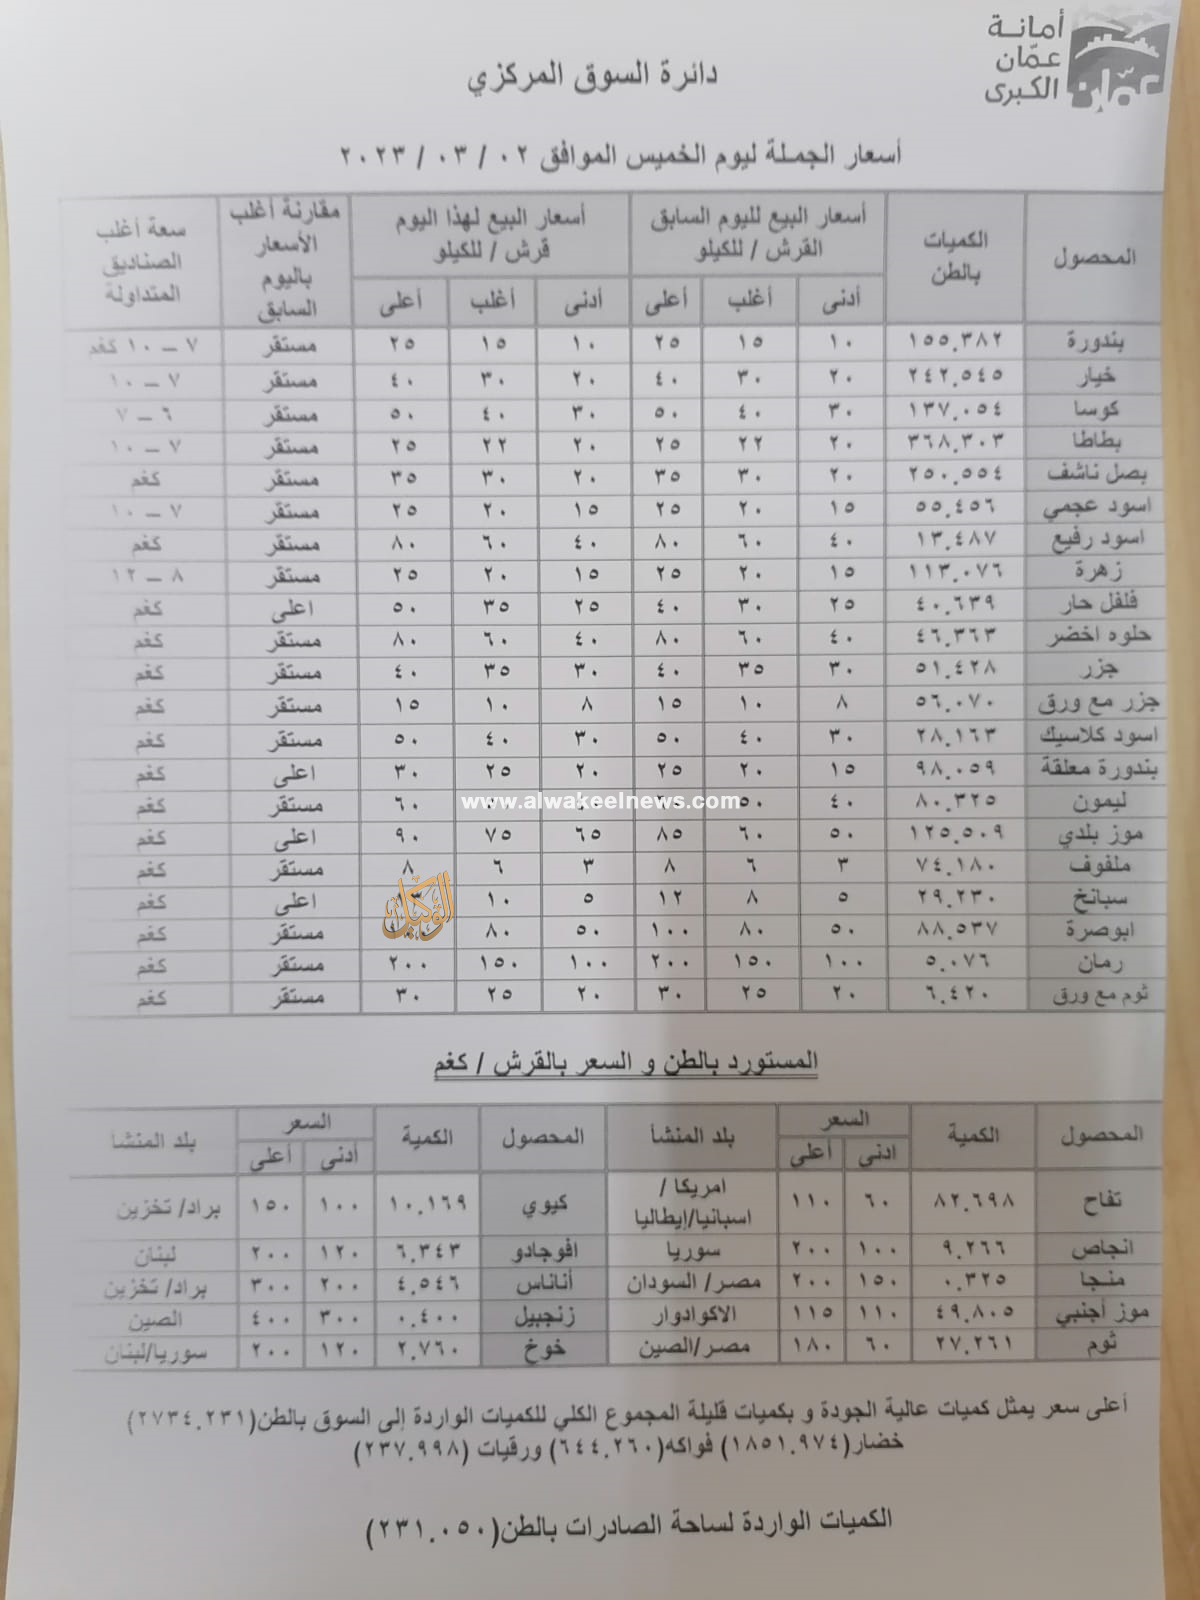 أمانة
عمّان
الكبرى
عمّان
دائرة السوق المركزي
أسعار الجملة ليوم الخميس الموافق ٠٢ / ٠٣ / ٢٠٢٣
المحصول الكميات بالطن أسعار البيع لليوم السابق القرش / للكيلو أسعار البيع لهذا اليوم قرش / للكيلو مقارنة أغلب الأسعار باليوم السابق سعة أغلب الصناديق المتداولة
أدنى أغلب أعلى أدنى أغلب أعلى
بندورة ١٥٥.٣٨٢ ١٠ ١٥ ٢٥ ١٠ ١٥ ٢٥ مستقر ٧ – ١٠ كغم
خيار ٢٤٢.٥٤٥ ٢٠ ٣٠ ٤٠ ٢٠ ٣٠ ٤٠ مستقر ٧ – ١٠
كوسا ١٣٧.٠٥٤ ٣٠ ٤٠ ٥٠ ٣٠ ٤٠ ٥٠ مستقر ٦ – ٧
بطاطا ٣٦٨.٣٠٣ ٢٠ ٢٢ ٢٥ ٢٠ ٢٢ ٢٥ مستقر ٧ – ١٠
بصل ناشف ٢٥٠.٥٥٤ ٢٠ ٣٠ ٣٥ ٢٠ ٣٠ ٣٥ مستقر كغم
اسود عجمي ٥٥.٤٥٦ ١٥ ٢٠ ٢٥ ١٥ ٢٠ ٢٥ مستقر ٧ – ١٠
اسود رفيع ١٣.٤٨٧ ٤٠ ٦٠ ٨٠ ٤٠ ٦٠ ٨٠ مستقر كغم
زهرة ١١٣.٠٧٦ ١٥ ٢٠ ٢٥ ١٥ ٢٠ ٢٥ مستقر ٨ – ١٢
فلفل حار ٤٠.٦٣٩ ٢٥ ٣٠ ٤٠ ٢٥ ٣٥ ٥٠ اعلى كغم
حلوه اخضر ٤٦.٣٦٣ ٤٠ ٦٠ ٨٠ ٤٠ ٦٠ ٨٠ مستقر كغم
جزر ٥١.٤٢٨ ٣٠ ٣٥ ٤٠ ٣٠ ٣٥ ٤٠ مستقر كغم
جزر مع ورق ٥٦.٠٧٠ ٨ ١٠ ١٥ ٨ ١٠ ١٥ مستقر كغم
اسود كلاسيك ٢٨.١٦٣ ٣٠ ٤٠ ٥٠ ٣٠ ٤٠ ٥٠ مستقر كغم
بندورة معلقة ٩٨.٠٥٩ ١٥ ٢٠ ٢٥ ٢٠ ٢٥ ٣٠ اعلى كغم
ليمون ٨٠.٣٢٥ ٤٠ ٥٠ ٦٠ مستقر كغم
www.alwakeelnews.com
موز بلدي ١٢٥.٥٠٩ ٥٠ ٦٠ ٨٥ ٦٥ ٧٥ ٩٠ اعلى كغم
ملفوف ٧٤.١٨٠ ٣ ٦ ٨ ٣ ٦ ٨ مستقر كغم
سبانخ ٢٩.٢٣٠ ٥ ٨ ١٢ ٥ ١٠ اعلى كغم
الوكيل
ابوصرة ٨٨.٥٣٧ ٥٠ ٨٠ ١٠٠ ٥٠ ٨٠ مستقر كغم
رمان ٥.٠٧٦ ١٠٠ ١٥٠ ٢٠٠ ١٠٠ ١٥٠ ٢٠٠ مستقر كغم
ثوم مع ورق ٦.٤٢٠ ٢٠ ٢٥ ٣٠ ٢٠ ٢٥ ٣٠ مستقر كغم
المستورد بالطن و السعر بالقرش / كغم
المحصول الكمية السعر بلد المنشأ المحصول الكمية السعر بلد المنشأ
ادنى أعلى أدنى أعلى
تفاح ٨٢.٦٩٨ ٦٠ ١١٠ امريكا / اسبانيا/إيطاليا كيوي ١٠.١٦٩ ١٠٠ ١٥٠ براد/ تخزين
انجاص ٩.٢٦٦ ١٠٠ ٢٠٠ سوريا افوجادو ٦.٣٤٣ ١٢٠ ٢٠٠ لبنان
منجا ٠.٣٢٥ ١٥٠ ٢٠٠ مصر/ السودان أناناس ٤.٥٤٦ ٢٠٠ ٣٠٠ براد/ تخزين
موز أجنبي ٤٩.٨٠٥ ١١٠ ١١٥ الاكوادوار زنجبيل ٠.٤٠٠ ٣٠٠ ٤٠٠ الصين
ثوم ٢٧.٢٦١ ٦٠ ١٨٠ مصر/الصين خوخ ٢.٧٦٠ ١٢٠ ٢٠٠ سوريا/لبنان
أعلى سعر يمثل كميات عالية الجودة و بكميات قليلة المجموع الكلي للكميات الواردة إلى السوق بالطن(٢٧٣٤.٢٣١)
خضار(١٨٥١.٩٧٤) فواكه(٦٤٤.٢٦٠) ورقيات (٢٣٧.٩٩٨)
الكميات الواردة لساحة الصادرات بالطن(٢٣١.٠٥٠)